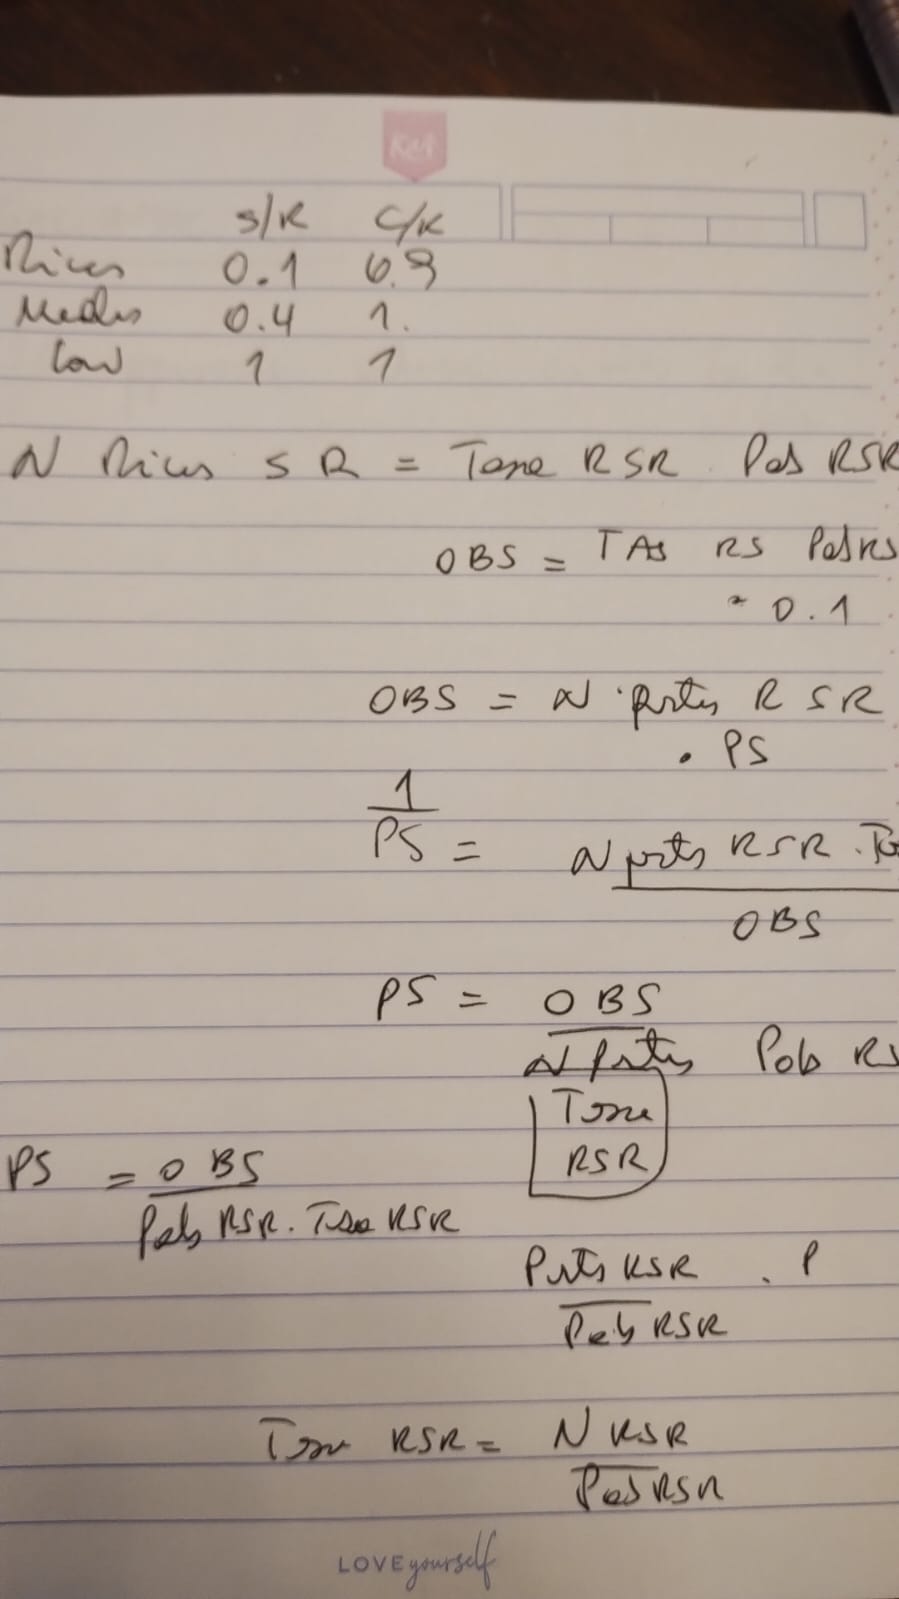 Ket
S/R C/R
Ricos 0.1 0.9
Medios 0.4 1.
Low 1 1
N Ricos S R = Tasa RSR Pob RSR
OBS = TAS RS Pob RS
0.1
OBS = N partos R S R
. PS
1
PS = N partos RSR .
OBS
PS = OBS
N Partos Pob RS
Tasa
RSR
PS = OBS
Pob RSR . Tasa RSR
Partos RSR . P
Pob RSR
Tasa RSR = N RSR
Pob RSR
LOVE yourself